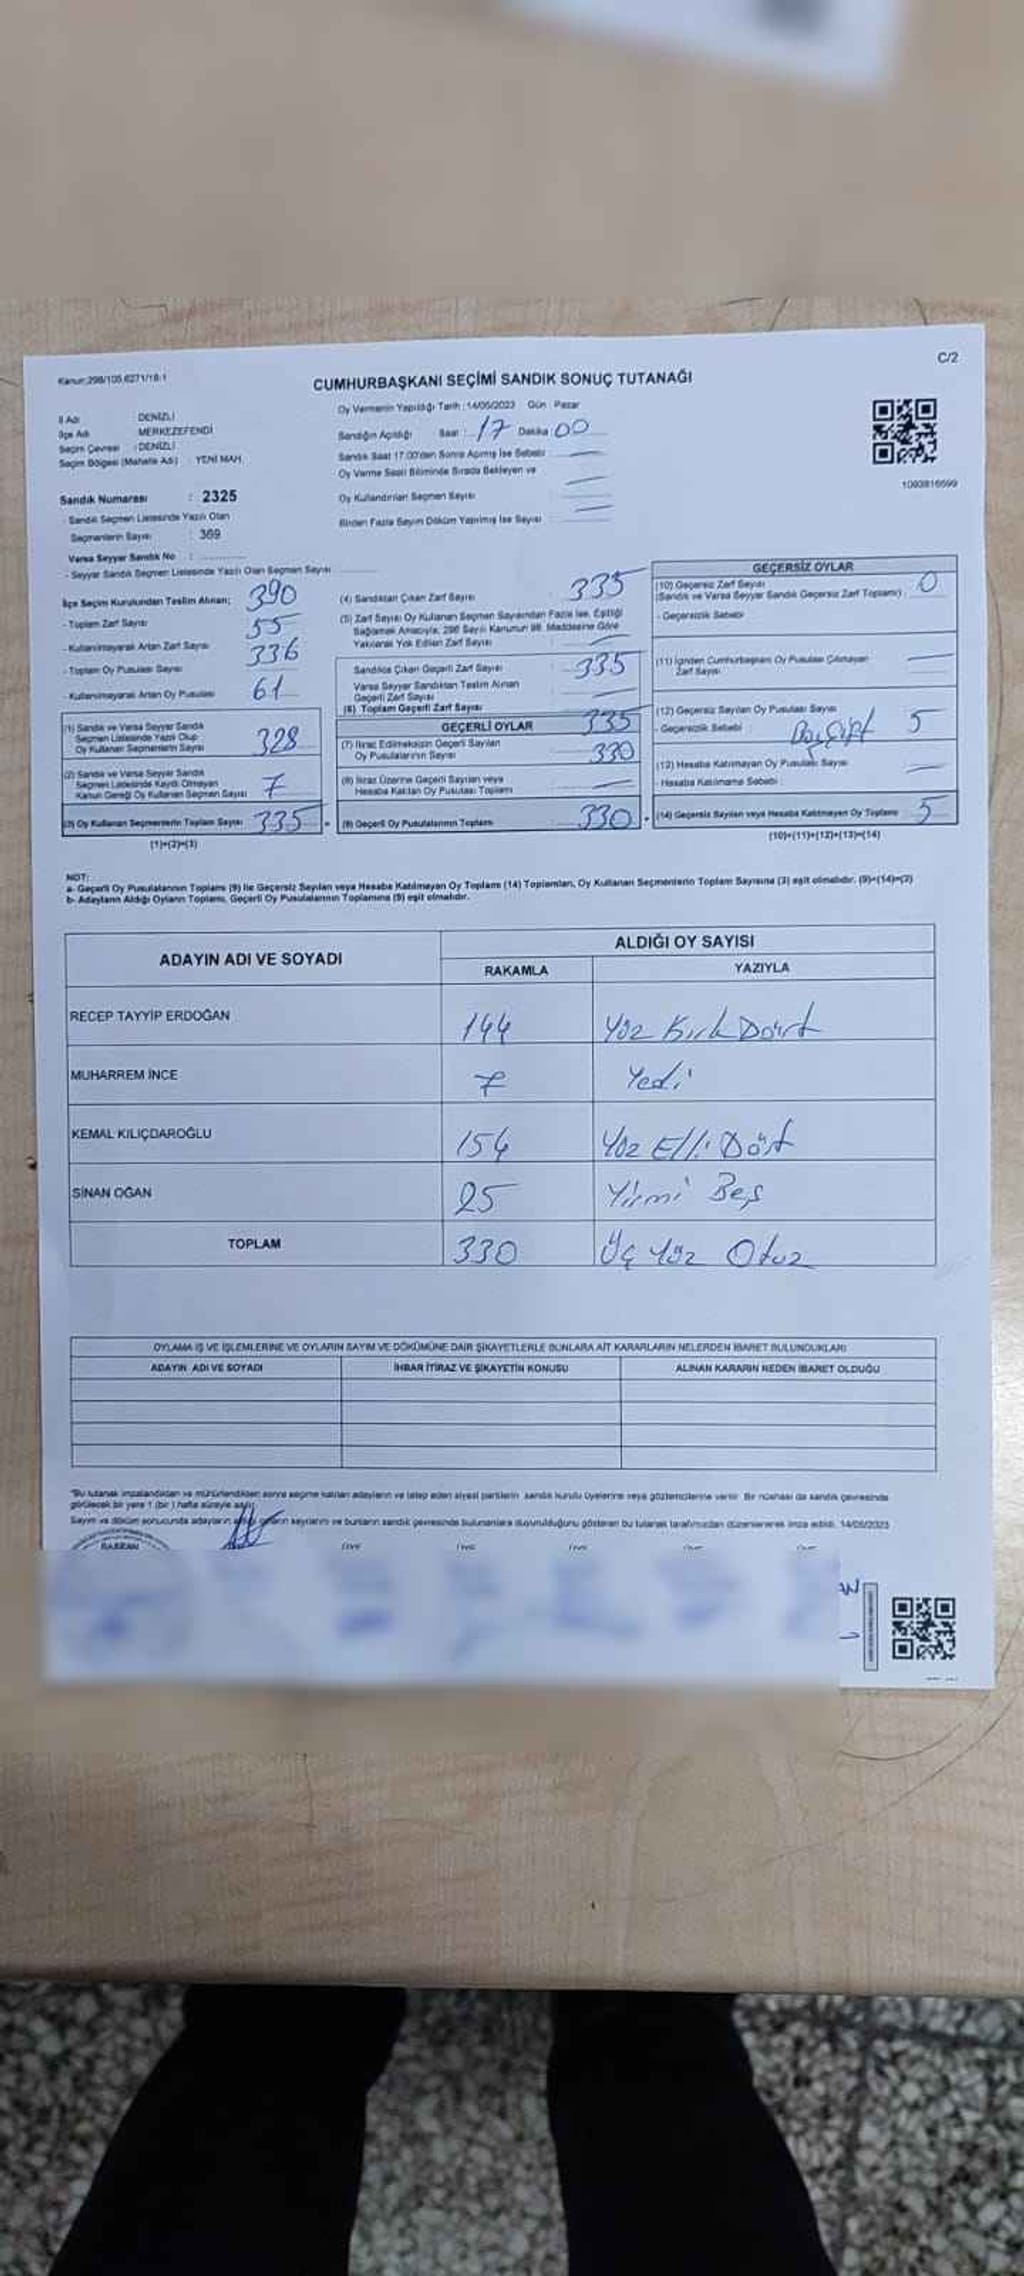 C/2
Kanun:298/105,6271/18:1
CUMHURBAŞKANI SEÇİMİ SANDIK SONUÇ TUTANAĞI
İl Adı DENİZLİ
İlçe Adı MERKEZEFENDİ
Seçim Çevresi : DENİZLİ
Seçim Bölgesi (Mahalle Adı) : YENİ MAH.
Oy Vermenin Yapıldığı Tarih : 14/05/2023 Gün : Pazar
Sandığın Açıldığı Saat : 17 Dakika : 00
Sandık Saat 17.00'den Sonra Açılmış İse Sebebi
Oy Verme Saati Bitiminde Sırada Bekleyen ve
Oy Kullandırılan Seçmen Sayısı
Birden Fazla Sayım Döküm Yapılmış İse Sayısı
1093816699
Sandık Numarası : 2325
- Sandık Seçmen Listesinde Yazılı Olan
Seçmenlerin Sayısı : 369
Varsa Seyyar Sandık No :
- Seyyar Sandık Seçmen Listesinde Yazılı Olan Seçmen Sayısı
İlçe Seçim Kurulundan Teslim Alınan; 390
- Toplam Zarf Sayısı 55
- Kullanılmayarak Artan Zarf Sayısı 336
- Toplam Oy Pusulası Sayısı
- Kullanılmayarak Artan Oy Pusulası 61
(1) Sandık ve Varsa Seyyar Sandık
Seçmen Listesinde Yazılı Olup
Oy Kullanan Seçmenlerin Sayısı 328
(2) Sandık ve Varsa Seyyar Sandık
Seçmen Listesinde Kaydı Olmayan
Kanun Gereği Oy Kullanan Seçmen Sayısı 7
(3) Oy Kullanan Seçmenlerin Toplam Sayısı 335 =
(1)+(2)=(3)
(4) Sandıktan Çıkan Zarf Sayısı 335
(5) Zarf Sayısı Oy Kullanan Seçmen Sayısından Fazla İse, Eşitliği
Sağlamak Amacıyla, 298 Sayılı Kanunun 98. Maddesine Göre
Yakılarak Yok Edilen Zarf Sayısı
Sandıkta Çıkan Geçerli Zarf Sayısı 335
Varsa Seyyar Sandıktan Teslim Alınan
Geçerli Zarf Sayısı
(6) Toplam Geçerli Zarf Sayısı 335
GEÇERLİ OYLAR
(7) İtiraz Edilmeksizin Geçerli Sayılan
Oy Pusulalarının Sayısı 330
(8) İtiraz Üzerine Geçerli Sayılan veya
Hesaba Katılan Oy Pusulası Toplamı
(9) Geçerli Oy Pusulalarının Toplamı 330 +
GEÇERSİZ OYLAR
(10) Geçersiz Zarf Sayısı 0
(Sandık ve Varsa Seyyar Sandık Geçersiz Zarf Toplamı)
- Geçersizlik Sebebi
(11) İçinden Cumhurbaşkanı Oy Pusulası Çıkmayan
Zarf Sayısı
(12) Geçersiz Sayılan Oy Pusulası Sayısı
- Geçersizlik Sebebi 5
(13) Hesaba Katılmayan Oy Pusulası Sayısı
Hesaba Katılmama Sebebi
(14) Geçersiz Sayılan veya Hesaba Katılmayan Oy Toplamı 5
(10)+(11)+(12)+(13)=(14)
NOT:
a- Geçerli Oy Pusulalarının Toplamı (9) ile Geçersiz Sayılan veya Hesaba Katılmayan Oy Toplamı (14) Toplamları, Oy Kullanan Seçmenlerin Toplam Sayısına (3) eşit olmalıdır. (9)+(14)=(3)
b- Adayların Aldığı Oyların Toplamı, Geçerli Oy Pusulalarının Toplamına (9) eşit olmalıdır.
ADAYIN ADI VE SOYADI
ALDIĞI OY SAYISI
RAKAMLA YAZIYLA
RECEP TAYYİP ERDOĞAN 144 Yüz Kırk Dört
MUHARREM İNCE 7 Yedi
KEMAL KILIÇDAROĞLU 154 Yüz Elli Dört
SİNAN OĞAN 25 Yirmi Beş
TOPLAM 330 Üç Yüz Otuz
OYLAMA İŞ VE İŞLEMLERİNE VE OYLARIN SAYIM VE DÖKÜMÜNE DAİR ŞİKAYETLERLE BUNLARA AİT KARARLARIN NELERDEN İBARET BULUNDUKLARI
ADAYIN ADI VE SOYADI İHBAR İTİRAZ VE ŞİKAYETİN KONUSU ALINAN KARARIN NEDEN İBARET OLDUĞU
"Bu tutanak imzalandıktan ve mühürlendikten sonra seçime katılan adayların ve talep eden siyasi partilerin sandık kurulu üyelerine veya gözlemcilerine verilir. Bir nüshası da sandık çevresinde
görülecek bir yere 1 (bir ) hafta süreyle asılır.
Sayım ve döküm sonucunda adayların aldığı oyların sayılarını ve bunların sandık çevresinde bulunanlara duyurulduğunu gösteren bu tutanak tarafımızdan düzenlenerek imza edildi. 14/05/2023
BAŞKAN